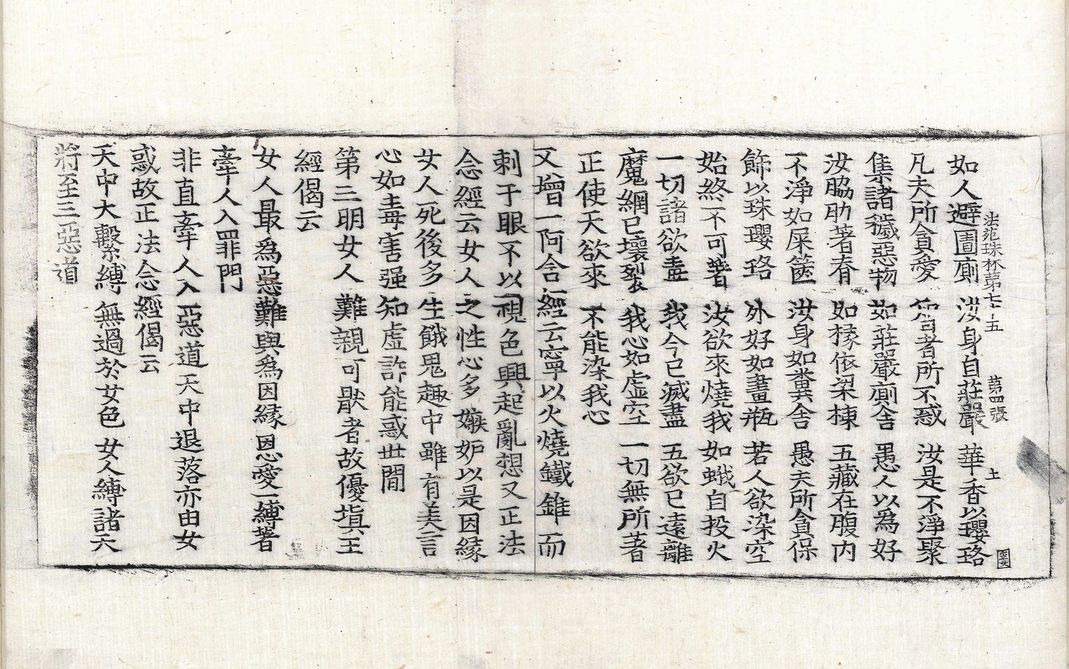 如人避圊廁 汝身自莊嚴 華香以瓔珞
法苑珠林第七十五 第四張 上
凡夫所貪愛 智者所不惑 汝是不淨聚
集諸穢惡物 如莊嚴廁舍 愚人以為好
汝脇肋著脊 如椽依梁棟 五藏在腹內
不淨如屎篋 汝身如糞舍 愚夫所貪保
飾以珠瓔珞 外好如畫瓶 若人欲染空
始終不可著 汝欲來燒我 如蛾自投火
一切諸欲毒 我今已滅盡 五欲已遠離
魔網已壞裂 我心如虛空 一切無所著
正使天欲來 不能染我心
又增一阿含經云寧以火燒鐵錐而
刺于眼不以視色興起亂想又正法
念經云女人之性心多嫉妬以是因緣
女人死後多生餓鬼趣中雖有美言
心如毒害强知虛詐能惑世間
第三明女人難親可猒者故優填王
經偈云
女人最為惡難與為因緣恩愛一縛著
牽人入罪門
非直牽人入惡道天中退落亦由女
惑故正法念經偈云
天中大繫縛 無過於女色 女人縛諸天
將至三惡道